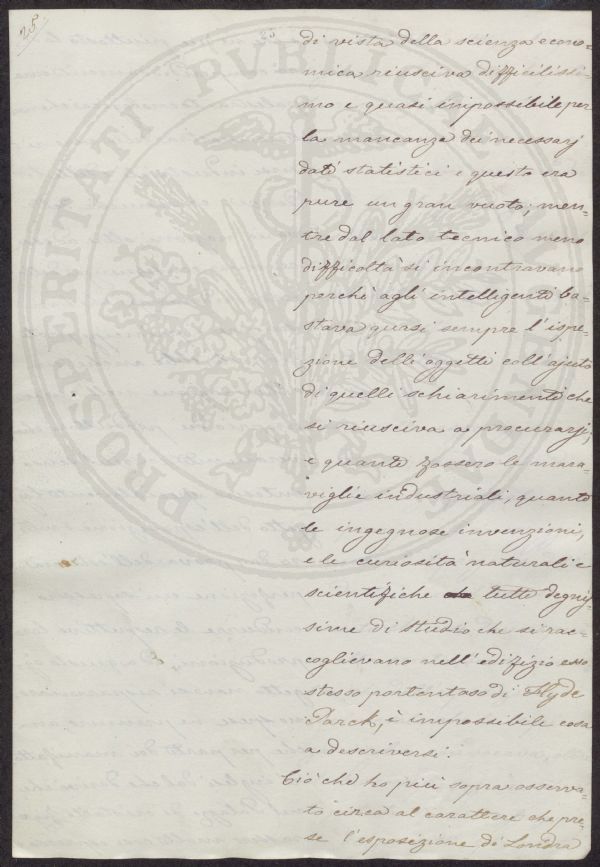 25
di vista della scienza econo=
mica riusciva difficilissi=
mo e quasi impossibile per
la mancanza dei necessarj
dati statistici e questo era
pure un gran vuoto; men=
tre dal lato tecnico meno
difficoltà si incontravano
perchè agli intelligenti ba=
stava quasi sempre l'ispe=
zione delli oggetti coll'ajuto
di quelli schiarimenti che
si riusciva a procurarsi;
e quante fossero le mara=
viglie industriali, quante
le ingegnose invenzioni,
e le curiosità naturali e
scientifiche tutte degnis=
sime di studio che si rac=
coglievano nell'edifizio esso
stesso portentoso di Hyde
Parck, è impossibile cosa
a descriversi.
Ciò che ho più sopra osserva=
to circa al carattere che pre=
se l'esposizione di Londra
PROSPERITATI PUBLICAE AUGENDAE